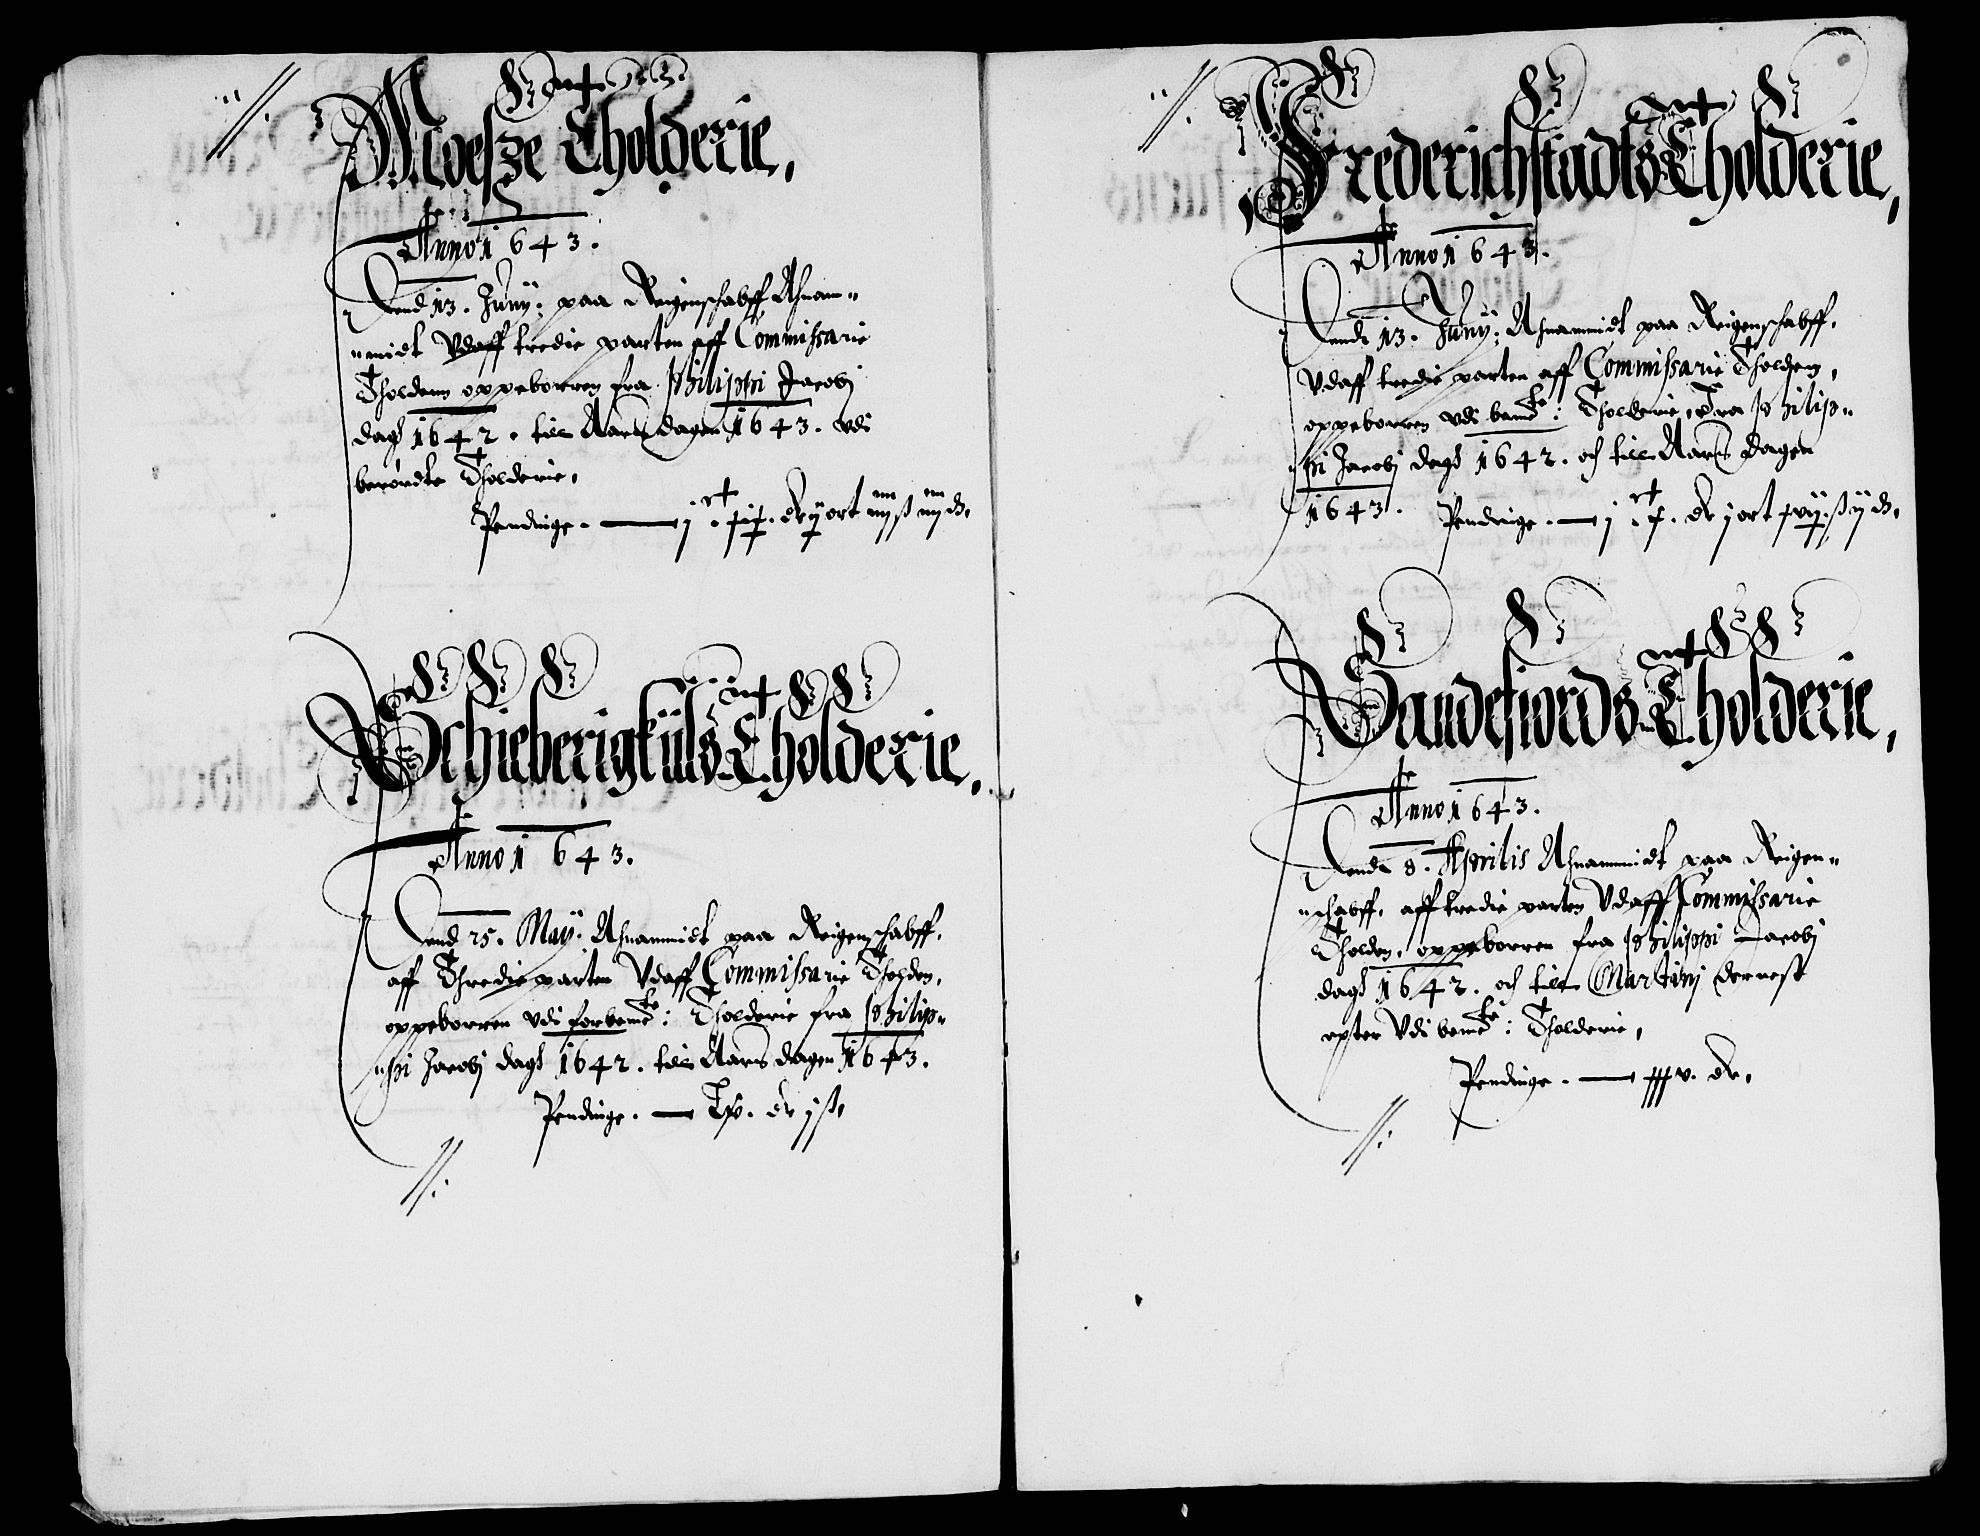 Moesze Tholderie,
Anno 1643.
Dend 13. Juny: paa Reigenschabff Ahnam=
=midt Vdaff tredie parten aff Commissarie
Tholdenn oppeborren fra Philippi Jacobj
dagh 1642. till Aars dagen 1643. vdi
berørdte Tholderie,
Pendinge. — j ort
Schieberigkiils Tholderie,
Anno 1643.
Dend 25. May: Ahnammidt paa Reigenschabff,
aff Thredie parten Vdaff Commissarie Tholden,
oppeborren vdi forbemte: Tholderie fra Philip=
=pi Jacobj dagh 1642. till Aars dagen 1643.
Pendinge. —
Frederichstadts Tholderie,
Anno 1643.
Dend 13. Juny: Ahnammidt paa Reigenschabff,
Vdaff tredie parten aff Commissarie Tholden,
oppeborren vdi bemte: Tholderie, Fra Philip=
=pi Jacobj dagh 1642. och till Aars dagen
1643. Pendinge. — j ort
Sandefiords Tholderie,
Anno 1643.
Dend 8. Aprilis Ahnammidt paa Reigen=
=schabff, aff tredie parten Vdaff Commissarie
Tholden, oppeborren fra Philippi Jacobj
dagh 1642. och till Martinj dernest
epter Vdi bemte: Tholderie,
Pendinge. —